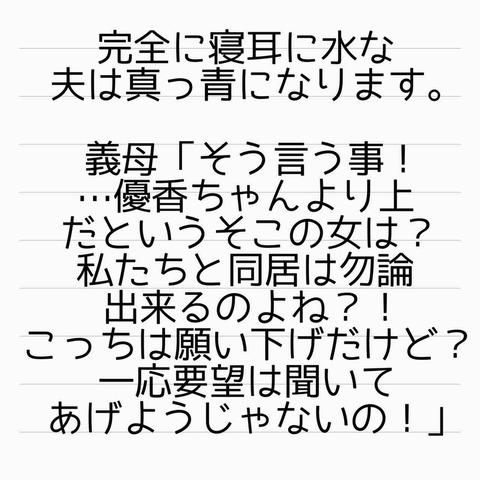 完全に寝耳に水な
夫は真っ青になります。
義母「そう言う事！
…優香ちゃんより上
だというそこの女は？
私たちと同居は勿論
出来るのよね？！
こっちは願い下げだけど？
一応要望は聞いて
あげようじゃないの！」